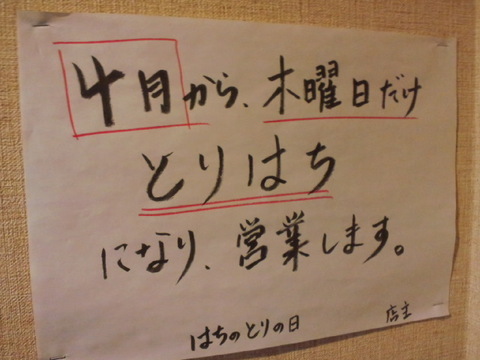 4月から、木曜日だけ
とりはち
になり、営業します。
はちのとりの日
店主